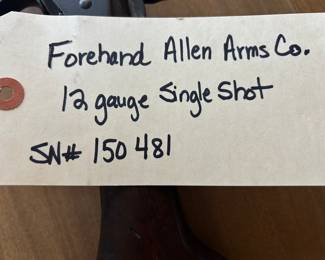 Forehand Allen Arms Co.
12 gauge Single Shot
SN# 150 481